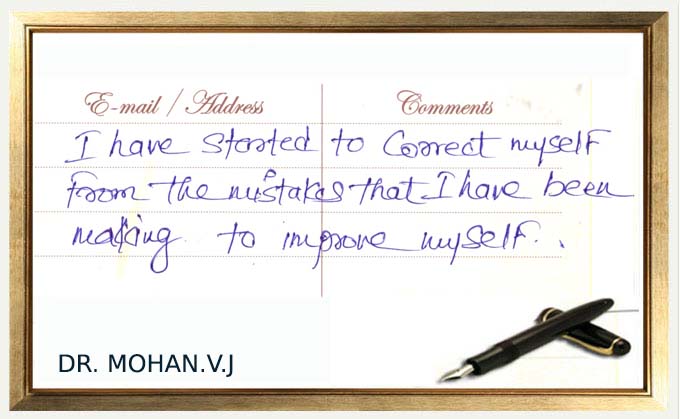 E-mail / Address Comments
I have started to correct myself
from the mistakes that I have been
making to improve myself..
DR. MOHAN.V.J